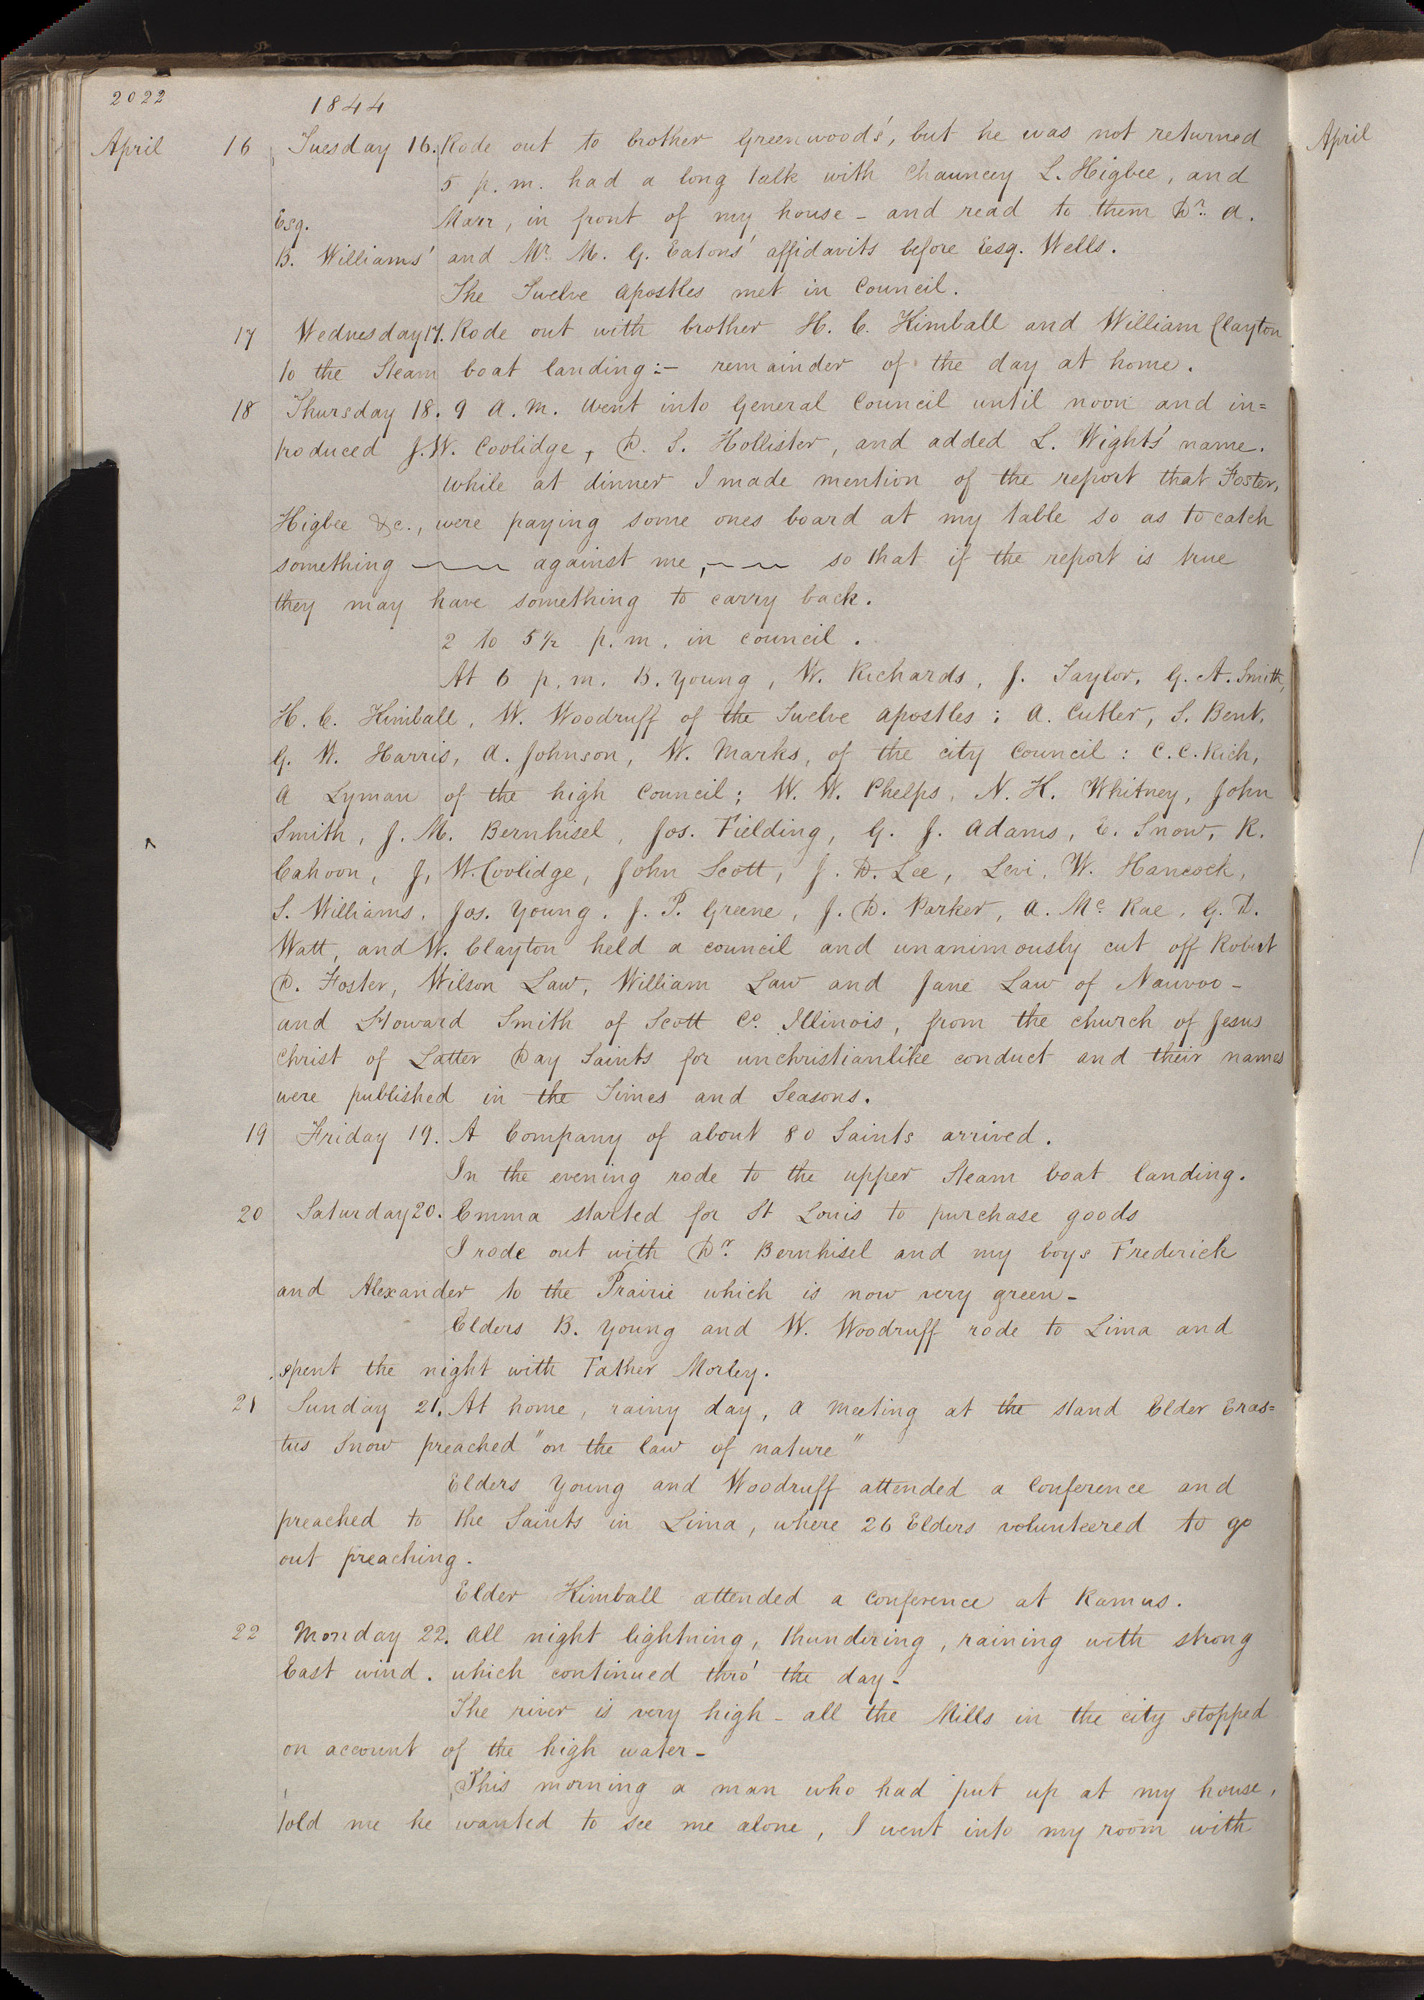 2022
1844
April 16 Tuesday 16. Rode out to brother Greenwoods', but he was not returned
5 p. m. had a long talk with Chauncey L. Higbee, and
Esq. Marr, in front of my house - and read to them Dr. A.
B. Williams' and Mr. M. G. Eatons' affidavits before Esq. Wells.
The Twelve Apostles met in Council.
17 Wednesday 17. Rode out with brother H. C. Kimball and William Clayton
to the Steam boat landing:- remainder of the day at home.
18 Thursday 18. 9 A. M. Went into General Council until noon and in=
troduced J. W. Coolidge, D. S. Hollister, and added L. Wight's name.
While at dinner I made mention of the report that Foster,
Higbee &c., were paying some ones board at my table so as to catch
something ~~~ against me, ~~~ so that if the report is true
they may have something to carry back.
2 to 5½ p. m. in council.
At 6 p. m. B. Young, W. Richards, J. Taylor, G. A. Smith,
H. C. Kimball, W. Woodruff of the Twelve Apostles; A. Cutler, S. Bent,
G. W. Harris, A. Johnson, W. Marks, of the city Council: C. C. Rich,
A Lyman of the high Council; W. W. Phelps, N. K. Whitney, John
Smith, J. M. Bernhisel, Jos. Fielding, G. J. Adams, E. Snow, R.
Cahoon, J, W. Coolidge, John Scott, J. D. Lee, Levi, W. Hancock,
S. Williams, Jos. Young, J. P. Greene, J. D. Parker, A. Mc. Rae, G. D.
Watt, and W. Clayton held a council and unanimously cut off Robert
D. Foster, Wilson Law, William Law and Jane Law of Nauvoo -
and Howard Smith of Scott Co. Illinois, from the church of Jesus
Christ of Latter Day Saints for unchristianlike conduct and their names
were published in the Times and Seasons.
19 Friday 19. A Company of about 80 Saints arrived.
In the evening rode to the upper Steam boat landing.
20 Saturday 20. Emma started for St Louis to purchase goods
I rode out with Dr. Bernhisel and my boys Frederick
and Alexander to the Prairie which is now very green-
Elders B. Young and W. Woodruff rode to Lima and
spent the night with Father Morley.
21 Sunday 21. At home, rainy day, a meeting at the stand Elder Eras=
tus Snow preached "on the law of nature"
Elders Young and Woodruff attended a Conference and
preached to the Saints in Lima, where 26 Elders volunteered to go
out preaching.
Elder Kimball attended a Conference at Ramus.
22 Monday 22. All night lightning, thundering, raining with strong
East wind. which continued thro' the day-
The river is very high - all the Mills in the city stopped
on account of the high water-
This morning a man who had put up at my house,
told me he wanted to see me alone, I went into my room with
April